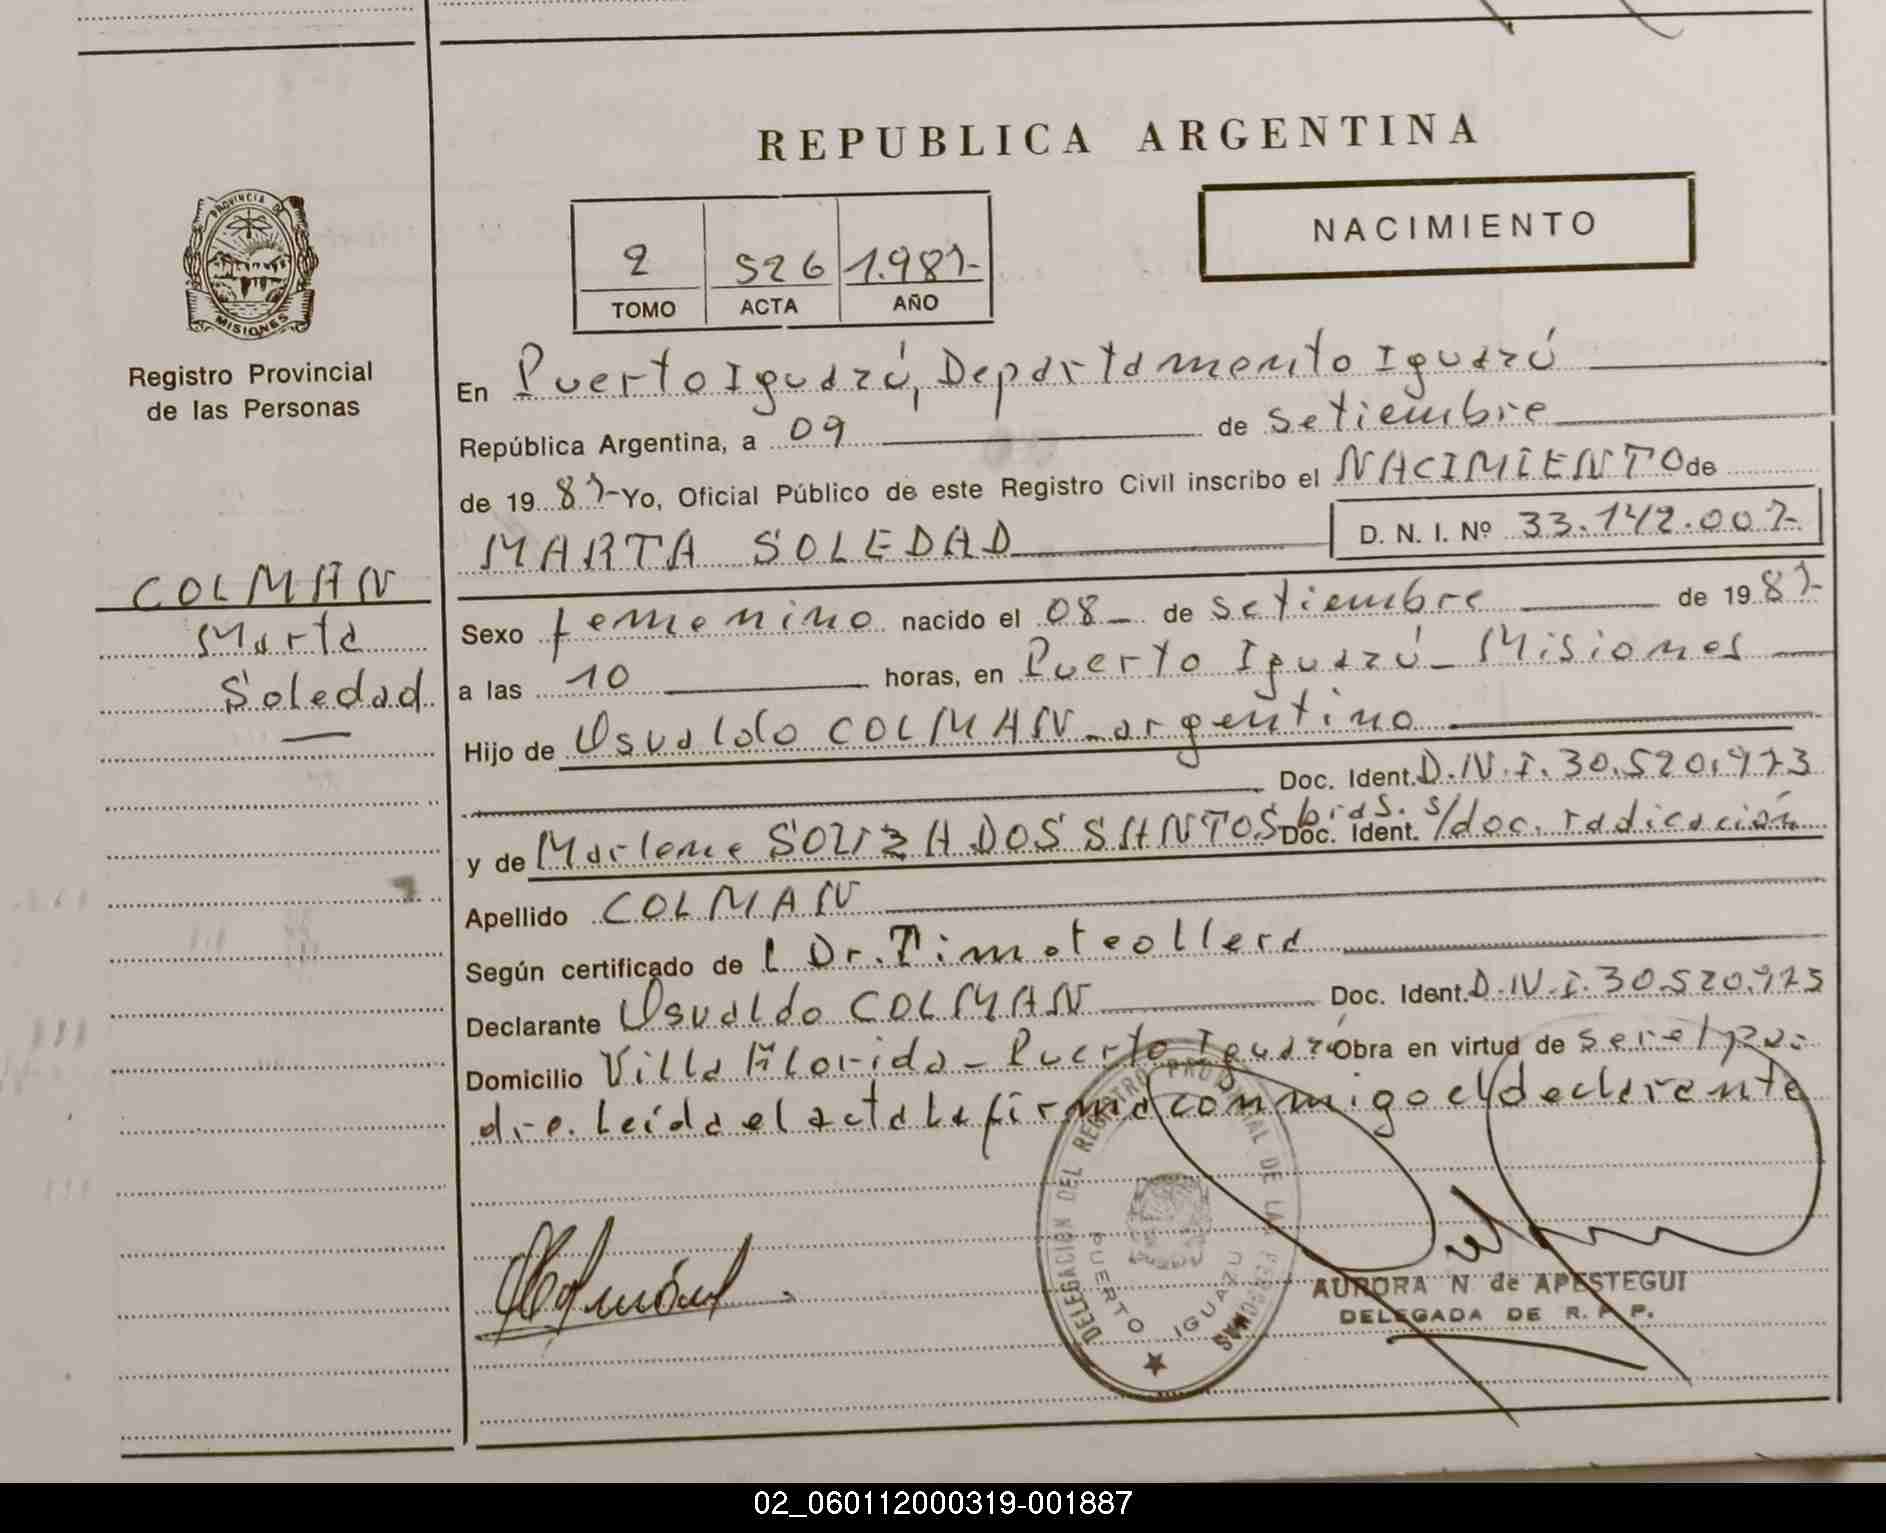 REPUBLICA ARGENTINA
PROVINCIA DE
MISIONES
Registro Provincial
de las Personas
COLMAN
Marta
Soledad
2 526 1.987-
TOMO ACTA AÑO
NACIMIENTO
En Puerto Iguazú, Departamento Iguazú
República Argentina, a 09 de setiembre
de 1987- Yo, Oficial Público de este Registro Civil inscribo el NACIMIENTO de
MARTA SOLEDAD D. N. I. Nº 33.142.007-
Sexo femenino nacido el 08 de setiembre de 1987-
a las 10 horas, en Puerto Iguazú - Misiones
Hijo de Osvaldo COLMAN - argentino
Doc. Ident. D.N.I. 30.520.973
y de Marlene SOUZA DOS SANTOS bras. Doc. Ident. s/doc. radicación
Apellido COLMAN
Según certificado de Dr. Timoteo Llera
Declarante Osvaldo COLMAN Doc. Ident. D.N.I. 30.520.973
Domicilio Villa Florida - Puerto Iguazú Obra en virtud de ser el pa-
dre. Leída el acta la firma conmigo el declarante
DELEGACION DEL REGISTRO PROVINCIAL DE LAS PERSONAS
PUERTO IGUAZU
AURORA N de APESTEGUI
DELEGADA DE R. P. P.
02_060112000319-001887